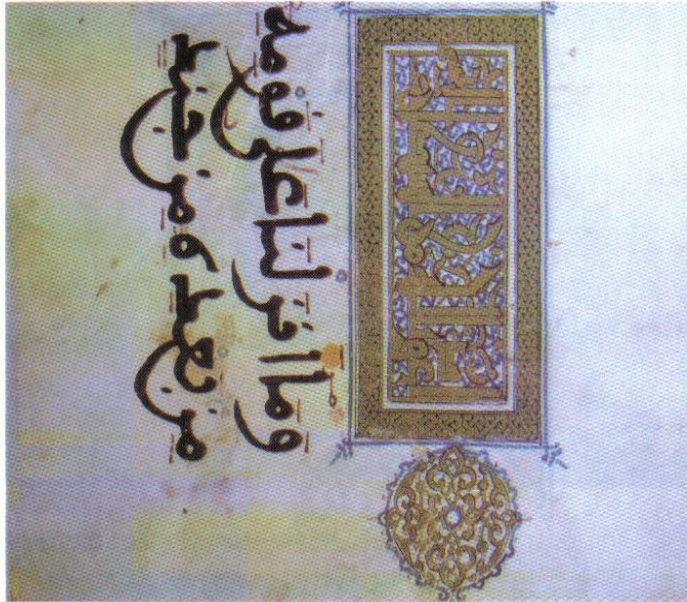 وما انزلنا على قومه
من بعده من جند